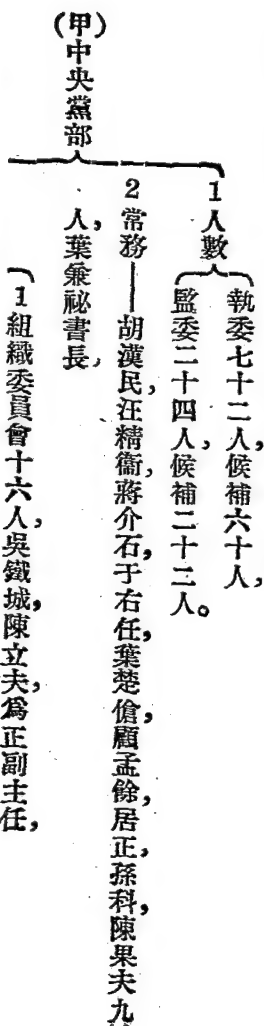 (甲)中央黨部
1人數
執委七十二人,候補六十人,
監委二十四人,候補二十二人。
2常務——胡漢民,汪精衞,蔣介石,于右任,葉楚傖,顧孟餘,居正,孫科,陳果夫九
人,葉兼祕書長,
1組織委員會十六人,吳鐵城,陳立夫,爲正副主任,